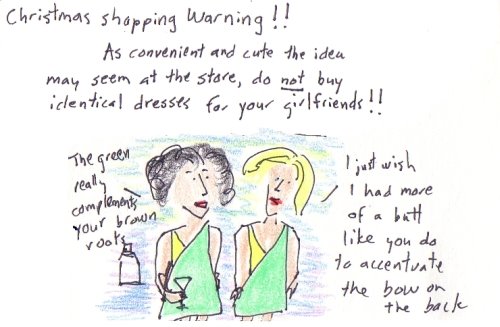 Christmas shopping Warning!!
As convenient and cute the idea
may seem at the store, do not buy
identical dresses for your girlfriends!!
The green
really
complements
your brown
roots
I just wish
I had more
of a butt
like you do
to accentuate
the bow on
the back